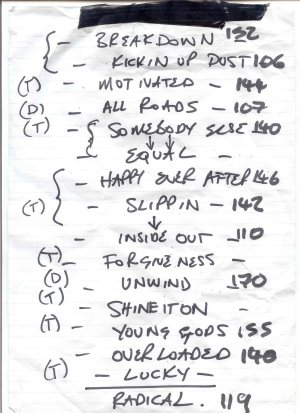 - BREAKDOWN 132
- KICKIN UP DUST 106
(T) - MOTIVATED - 144
(D) - ALL ROADS - 107
(T) - SOMEBODY ELSE 140
- EQUAL -
- HAPPY EVER AFTER 146
(T) - SLIPPIN - 142
- INSIDE OUT - 110
(T) - FORGIVENESS -
(D) - UNWIND 170
(T) - SHINE IT ON -
(T) - YOUNG GODS 155
- OVERLOADED 140
(T) - LUCKY -
RADICAL. 119